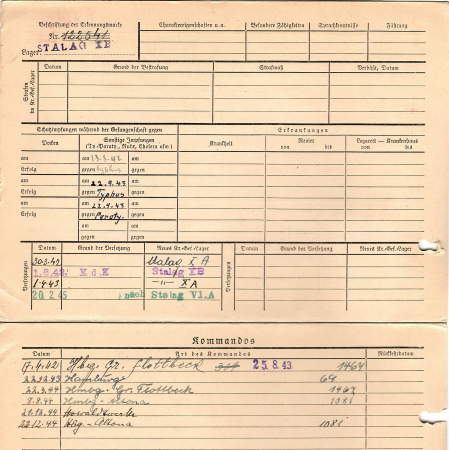 Beschriftung der Erkennungsmarke
Nr. 122541
Lager: STALAG XB
Charaktereigenschaften u. a.
Besondere Fähigkeiten
Sprachkenntnisse
Führung
Strafen im Kr.-Gef.-Lager
Datum
Grund der Bestrafung
Strafmaß
Verbüßt, Datum
Schutzimpfungen während der Gefangenschaft gegen
Erkrankungen
Pocken
Sonstige Impfungen
(Ty.-Paraty., Ruhr, Cholera usw.)
Krankheit
Revier
von bis
Lazarett — Krankenhaus
von bis
am am 13.3.42 am
Erfolg gegen gegen
am am 22.9.43 am
Erfolg gegen Typhus gegen
am am 22.9.43 am
Erfolg gegen Paraty. gegen
am am
gegen gegen
Versetzungen
Datum
Grund der Versetzung
Neues Kr.-Gef.-Lager
Versetzungen
Datum
Grund der Versetzung
Neues Kr.-Gef.-Lager
30.3.42 X A
1.8.42 K d. K Stalag XB
1.4.43 —"— X A
20.2.45 nach Stalag VI.A
Kommandos
Datum
Art des Kommandos
Rückkehrdatum
(7.4.42) Hbg. Gr. Flottbeck 25.8.43 1464
22.12.43 Hamburg 69
22.3.44 Hmbg. Gr. Flottbeck 1467
8.9.44 Hmbg - Altona 1081
21.12.44 Howaldtswerke
22.12.44 Hbg. - Altona 1081